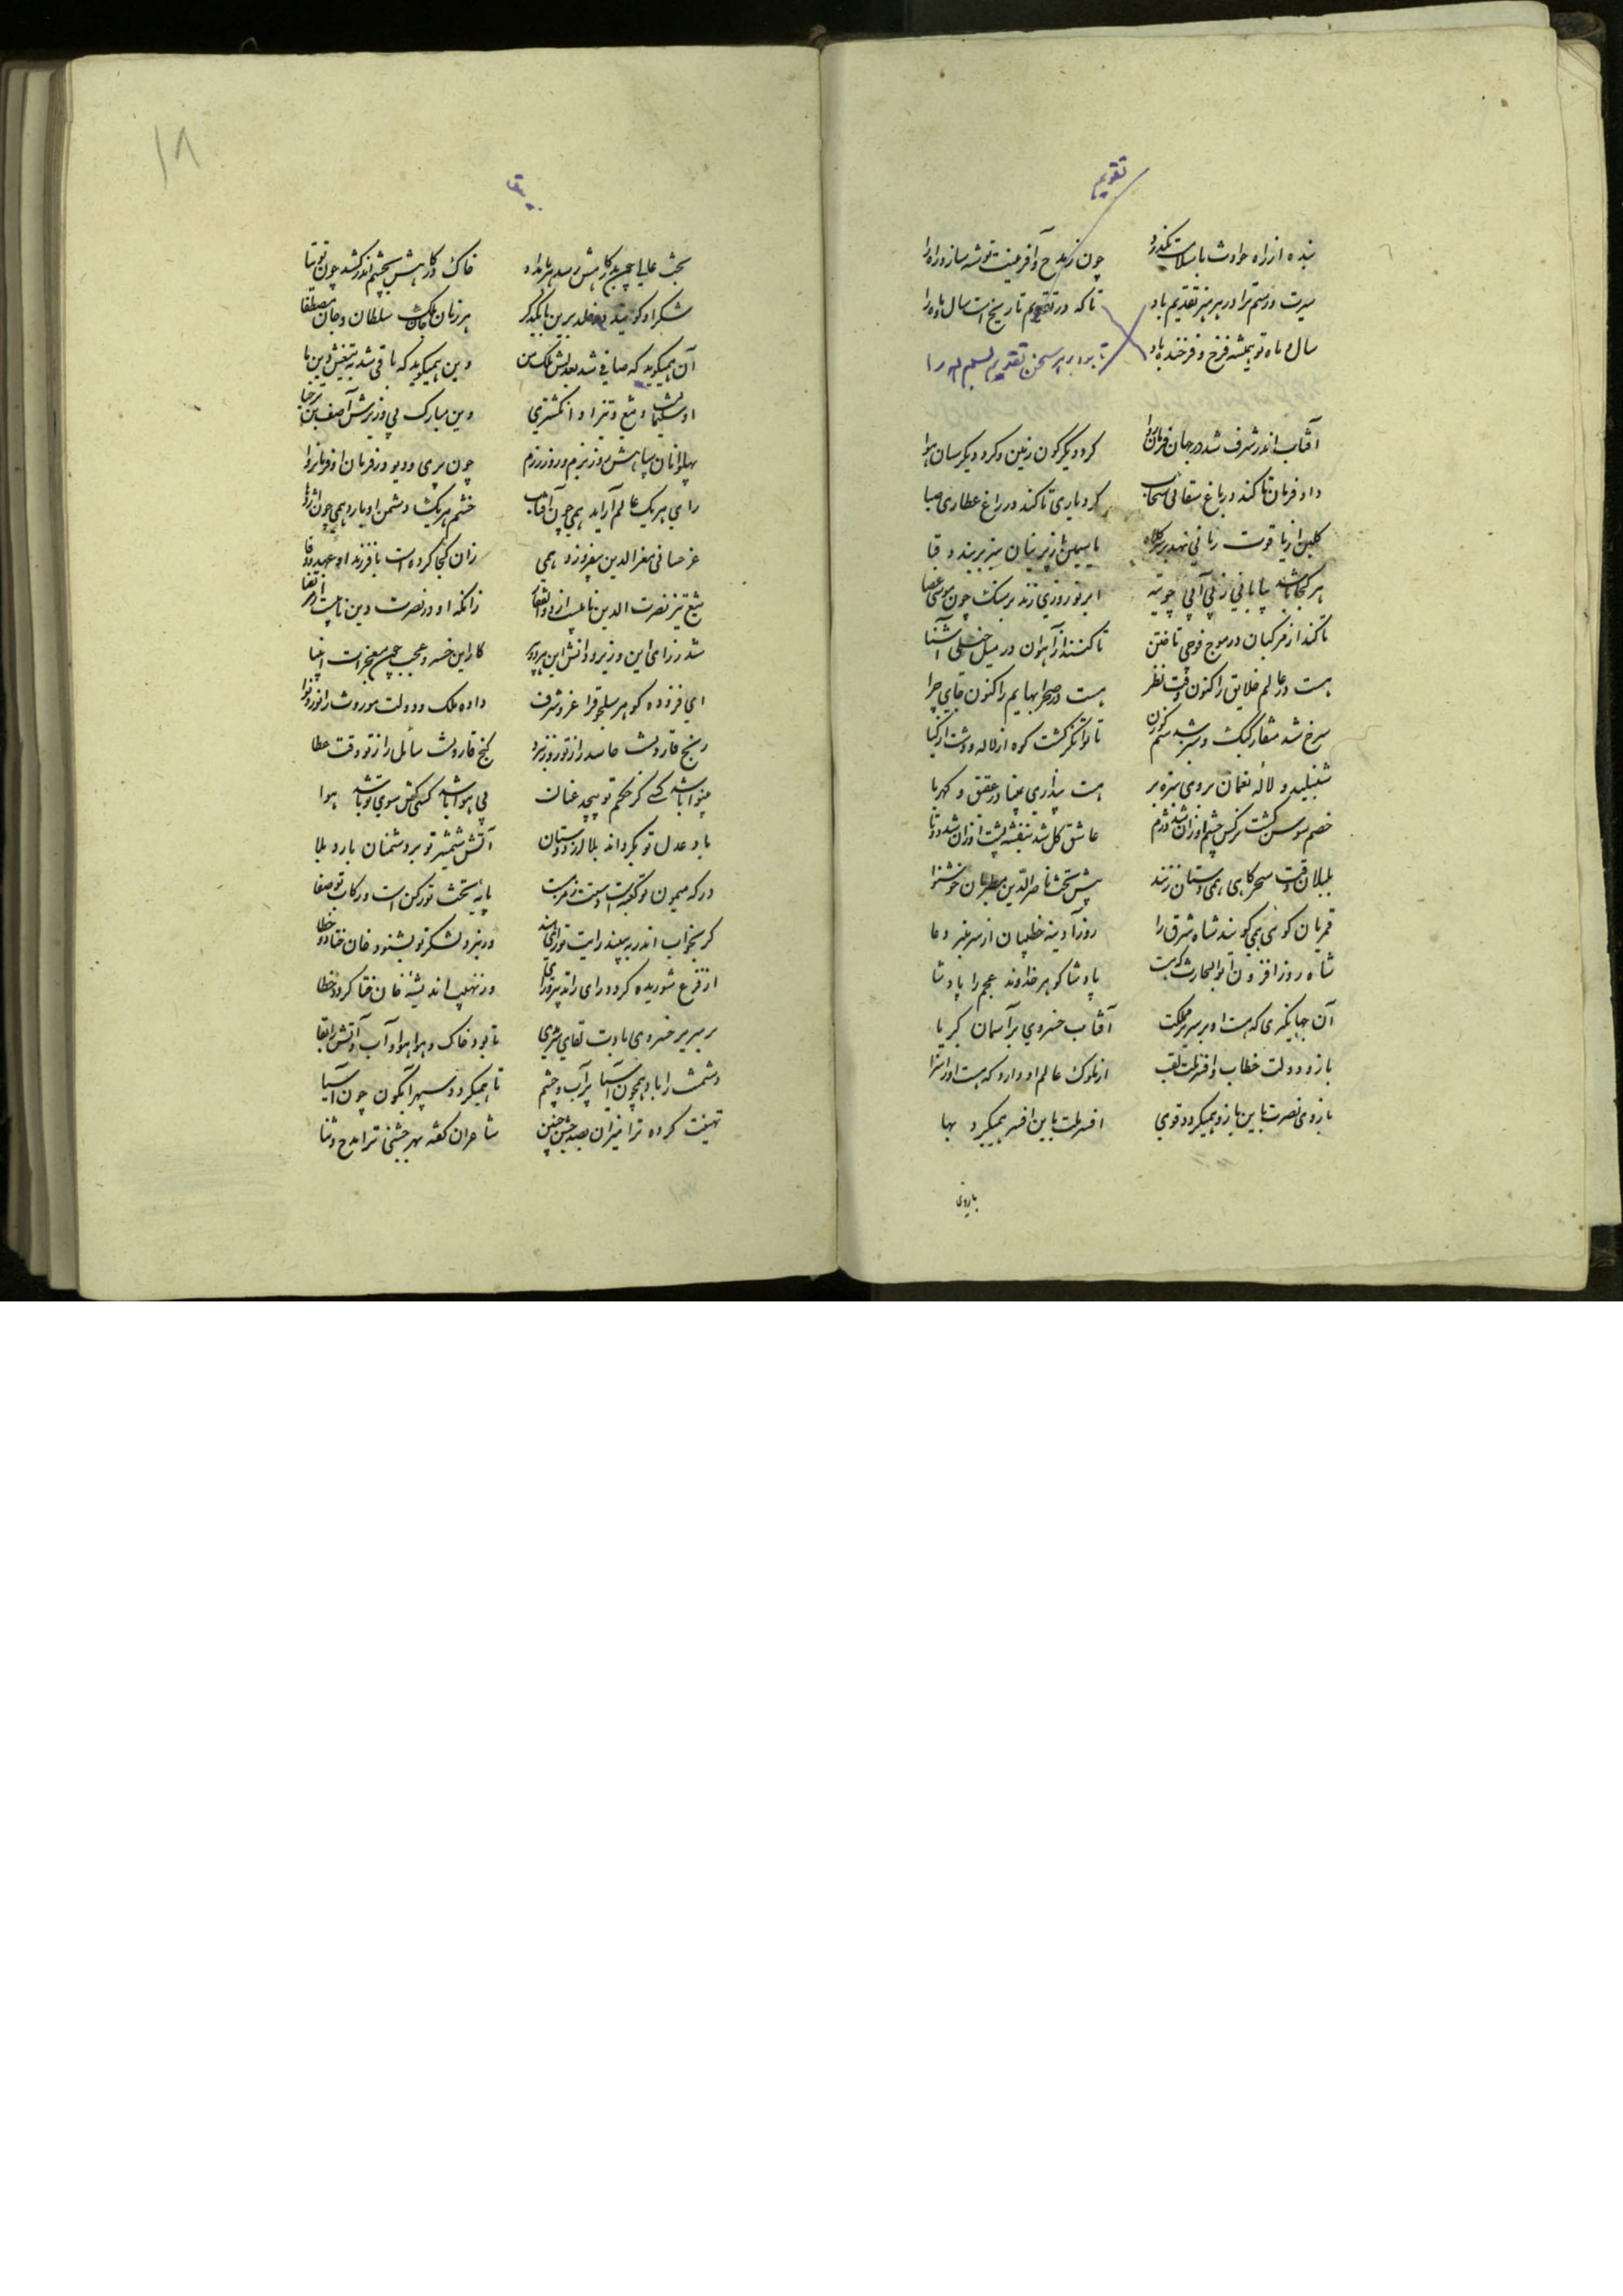 تقویم
بنده از راه حوادث با سلامت بگذرد چون ز مدح و آفرینت توشه سازد راه را
سیرت و رسم ترا در هر هنر تقدیم باد تا که در تقویم تاریخ است سال و ماه را
سال و ماه تو همیشه فرخ و فرخنده باد تا بود در هر سخن تقدیم
آفتاب اندر شرف شد در جهان فرمان روا کرد دیگرگون زمین و کرد دیگرسان هوا
داد فرمان تا کند در باغ سقائی سحاب کرد یاری تا کند در راغ عطاری صبا
گلبن از یاقوت رمانی نهد بر سر کلاه یاسمین از پرنیان سبز بربندد قبا
هر کجا باشد بیابانی ز بی آبی چو تیه ابر نوروزی زند بر سنگ چون موسی عصا
تا کنند از مرکبان در موج فوجی تاختن تا کنند از آهوان در میل خیلی آشنا
هست در عالم خلایق را کنون وقت نظر هست در صحرا بهایم را کنون جای چرا
سرخ شد منقار کبک و سبز شد سم گوزن تا توانگر گشت کوه از لاله و دشت از گیا
شنبلید و لاله نعمان بروی سبزه بر هست پنداری بمینا در عقیق و کهربا
خصم سوسن گشت نرگس چشم او زان شد دژم عاشق گل شد بنفشه پشت او زان شد دوتا
بلبلان وقت سحرگاهی همی دستان زنند پیش تخت ناصرالدین مطربان خوشنوا
قمریان گوئی همی گویند شاه شرق را روز آدینه خطیبان از سر منبر دعا
شاه روز افزون ابوالحارث که هست پادشا گوهر خداوند عجم را پادشا
آن جهانگیری که هست او بر سریر مملکت آفتاب خسروی بر آسمان کبریا
بازوی دولت خطاب و افسر ملت لقب از ملوک عالم او دارد که هست او را سزا
بازوی نصرت باین بازو همیگردد قوی افسر ملت باین افسر همیگیرد بها
بازوی
۱۸
بخت عالی چون بدرگاهش رسد هر بامداد خاک درگاهش بچشم اندر کشد چون توتیا
شکر او گویند در خلد برین با یکدگر هر زمان جان ملک سلطان و جان مصطفا
آن همیگوید که صافی شد بعدلش ملک من وین همیگوید که باقی شد بتیغش دین ما
او سلیمانست و تیغ تیز او انگشتری وین مبارک پی وزیرش آصف بن برخیا
پهلوانان سپاهش روز بزم و روز رزم چون پری و دیو در فرمان او فرمانروا
رای هر یک عالم آراید همی چون آفتاب خشم هر یک دشمن اوبارد همی چون اژدها
عز حسانی معزالدین بیفروزد همی زان کجا کرده است با فرزند او عهد و وفا
تیغ تیز نصرت الدین نائبست از ذوالفقار زانکه او در نصرت دین نائبست از مرتضا
شد ز رای این وزیر و دانش این هر دو پیر کار این خسرو عجب چون معجزات انبیا
ای فزوده گوهر سلجوق را عز و شرف داده ملک و دولت موروث را نور و نوا
رنج قارونست حاسد را ز تو روز نبرد گنج قارونست سائل را ز تو وقت عطا
بینوا باشد کسی کز حکم تو پیچد عنان بی هوا باشد کسی کش سوی تو باشد هوا
باد عدل تو بگرداند بلا از دوستان آتش شمشیر تو بر دشمنان بارد بلا
درگه میمون تو کعبه است و دستت زمزمست پایه تخت تو رکن است و رکاب تو صفا
گر بخواب اندر ببیند رایت تو رای هند ور نبرد لشکر تو بشنود خان ختا
از فزع شوریده گردد رای را تدبیر و رای وز نهیب اندیشه خان ختا گردد خطا
بر سریر خسروی بادت بقای مشتری تا بود خاک و هوا و آب و آتش را بقا
دشمنت را باد همچون آسیا پر آب چشم تا همیگردد سپهر آبگون چون آسیا
تهنیت کرده ترا میران بصد جشن چنین شاعران گفته بهر جشنی ترا مدح و ثنا